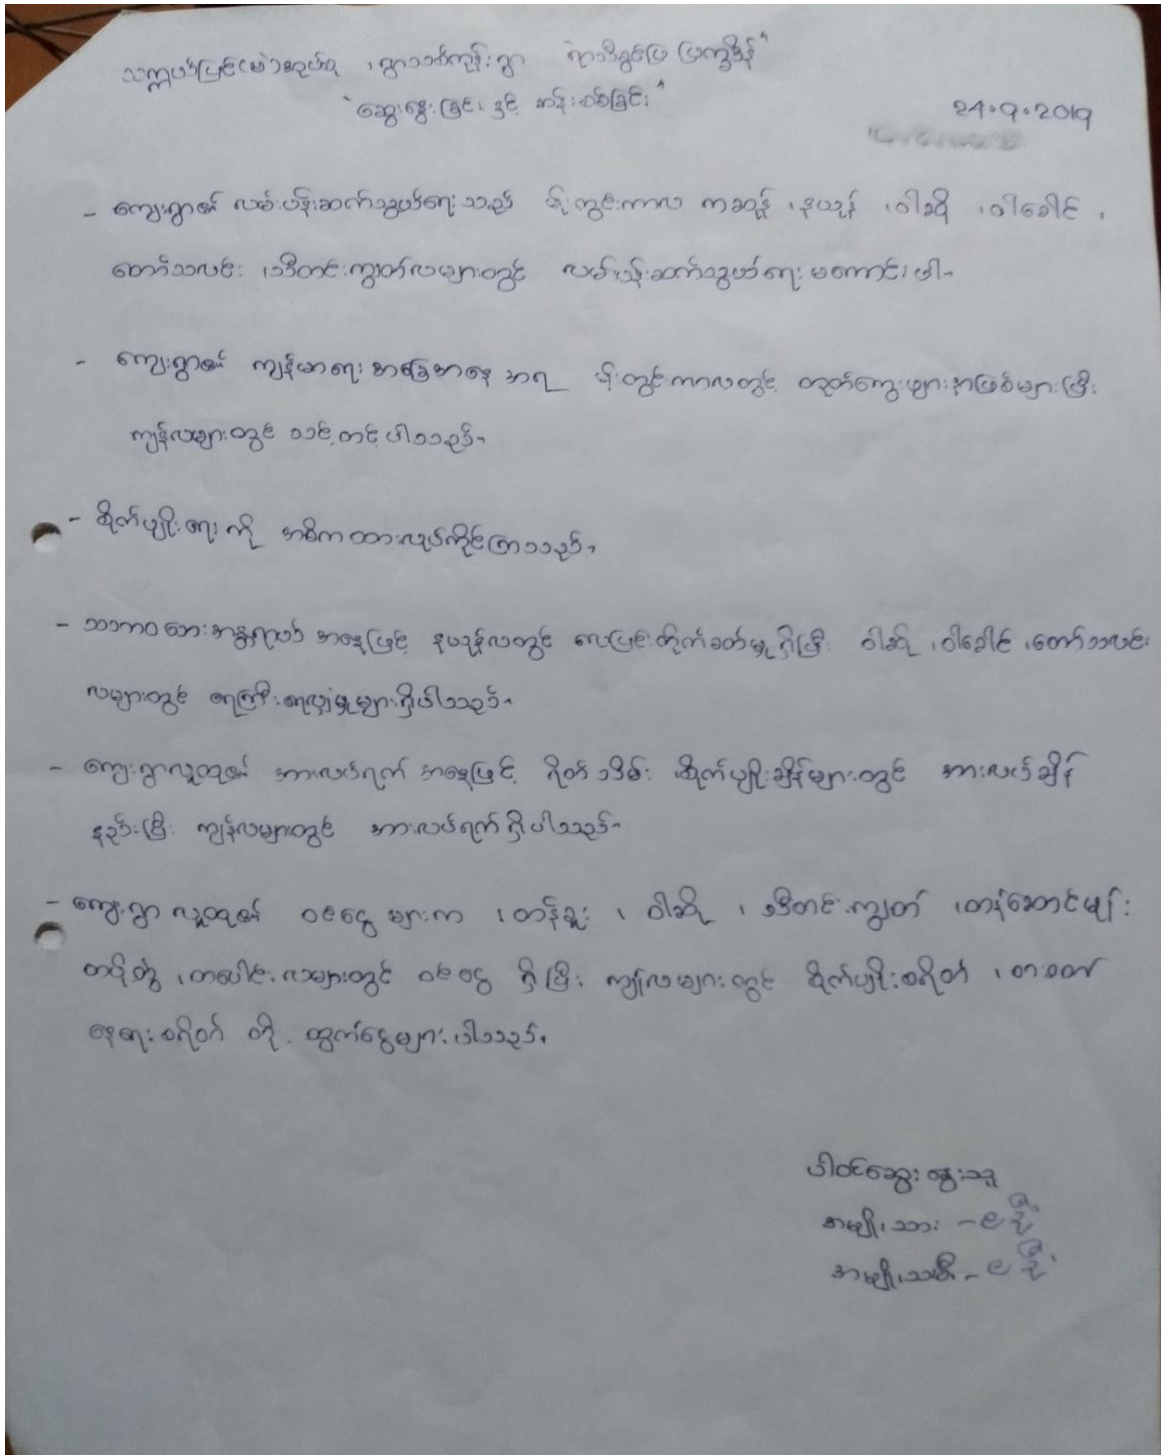 သက္ကယ်ပြင်(မဲ)အုပ်စု ၊ ရွာသစ်ကုန်းရွာ "ရာသီခွင်ပြ ပြက္ခဒိန်"
"ဆွေးနွေးခြင်း နှင့် ဆန်းစစ်ခြင်း"
24.9.2019
- ကျေးရွာ၏ လမ်းပန်းဆက်သွယ်ရေးသည် မိုးတွင်းကာလ ကဆုန် ၊ နယုန် ၊ ဝါဆို ၊ ဝါခေါင် ၊
တော်သလင်း ၊ သီတင်းကျွတ်လများတွင် လမ်းပန်းဆက်သွယ်ရေး မကောင်းပါ။
- ကျေးရွာ၏ ကျန်မာရေး အခြေအနေ အရ မိုးတွင်းကာလတွင် တုတ်ကွေးဖျားနာဖြစ်များပြီး
ကျန်လများတွင် သင့်တင့်ပါသည်။
- စိုက်ပျိုးရေးကို အဓိကထားလုပ်ကိုင်ကြသည်။
- သဘာဝဘေးအန္တရာယ် အနေဖြင့် နယုန်လတွင် လေပြင်းတိုက်ခတ်မှုရှိပြီး ဝါဆို ၊ ဝါခေါင် ၊ တော်သလင်း
လများတွင် ရေကြီးရေလျှံမှုများရှိပါသည်။
- ကျေးရွာလူထု၏ အားလပ်ရက် အနေဖြင့် ရိတ်သိမ်း စိုက်ပျိုးချိန်များတွင် အားလပ်ချိန်
နည်းပြီး ကျန်လများတွင် အားလပ်ရက်ရှိပါသည်။
- ကျေးရွာ လူထု၏ ဝင်ငွေ များက ၊ တန်ခူး ၊ ဝါဆို ၊ သီတင်းကျွတ် ၊ တန်ဆောင်မုန်း
တပို့တွဲ ၊ တပေါင်းလများတွင် ဝင်ငွေ ရှိပြီး ကျန်လများတွင် စိုက်ပျိုးစရိတ် ၊ စားဝတ်
နေရေးစရိတ် တို့ ထွက်ငွေများပါသည်။
ပါဝင်ဆွေးနွေးသူ
အမျိုးသား - ၉ ဦး
အမျိုးသမီး - ၉ ဦး